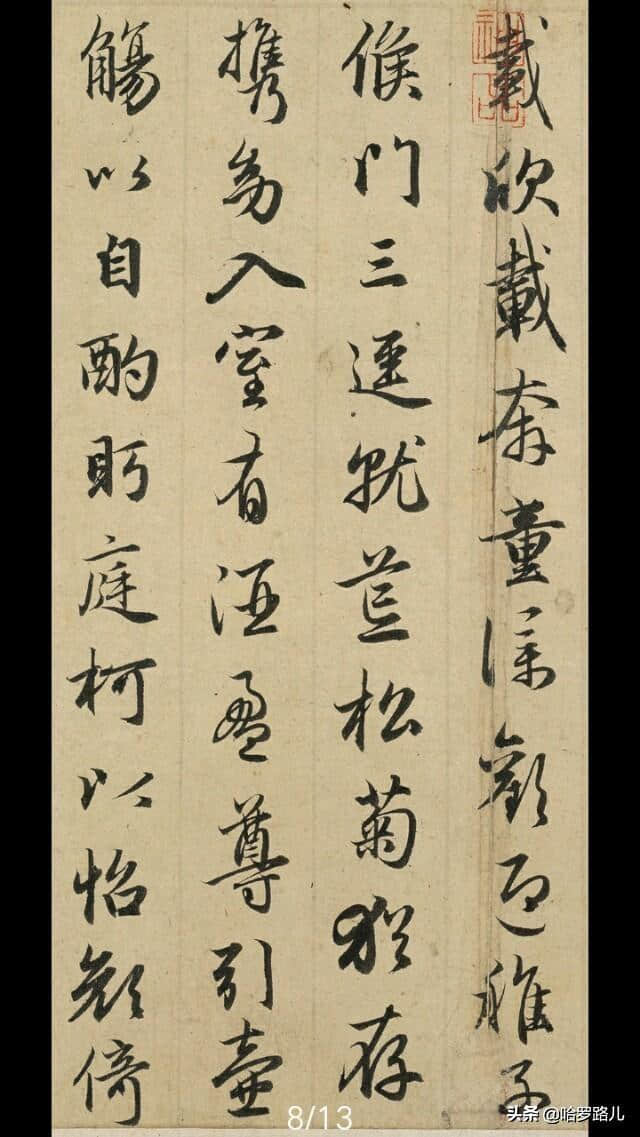 載欣載奔童僕歡迎稚子
候門三逕就荒松菊猶存
携幼入室有酒盈尊引壺
觴以自酌眄庭柯以怡顔倚
8/13
头条 @哈罗路儿